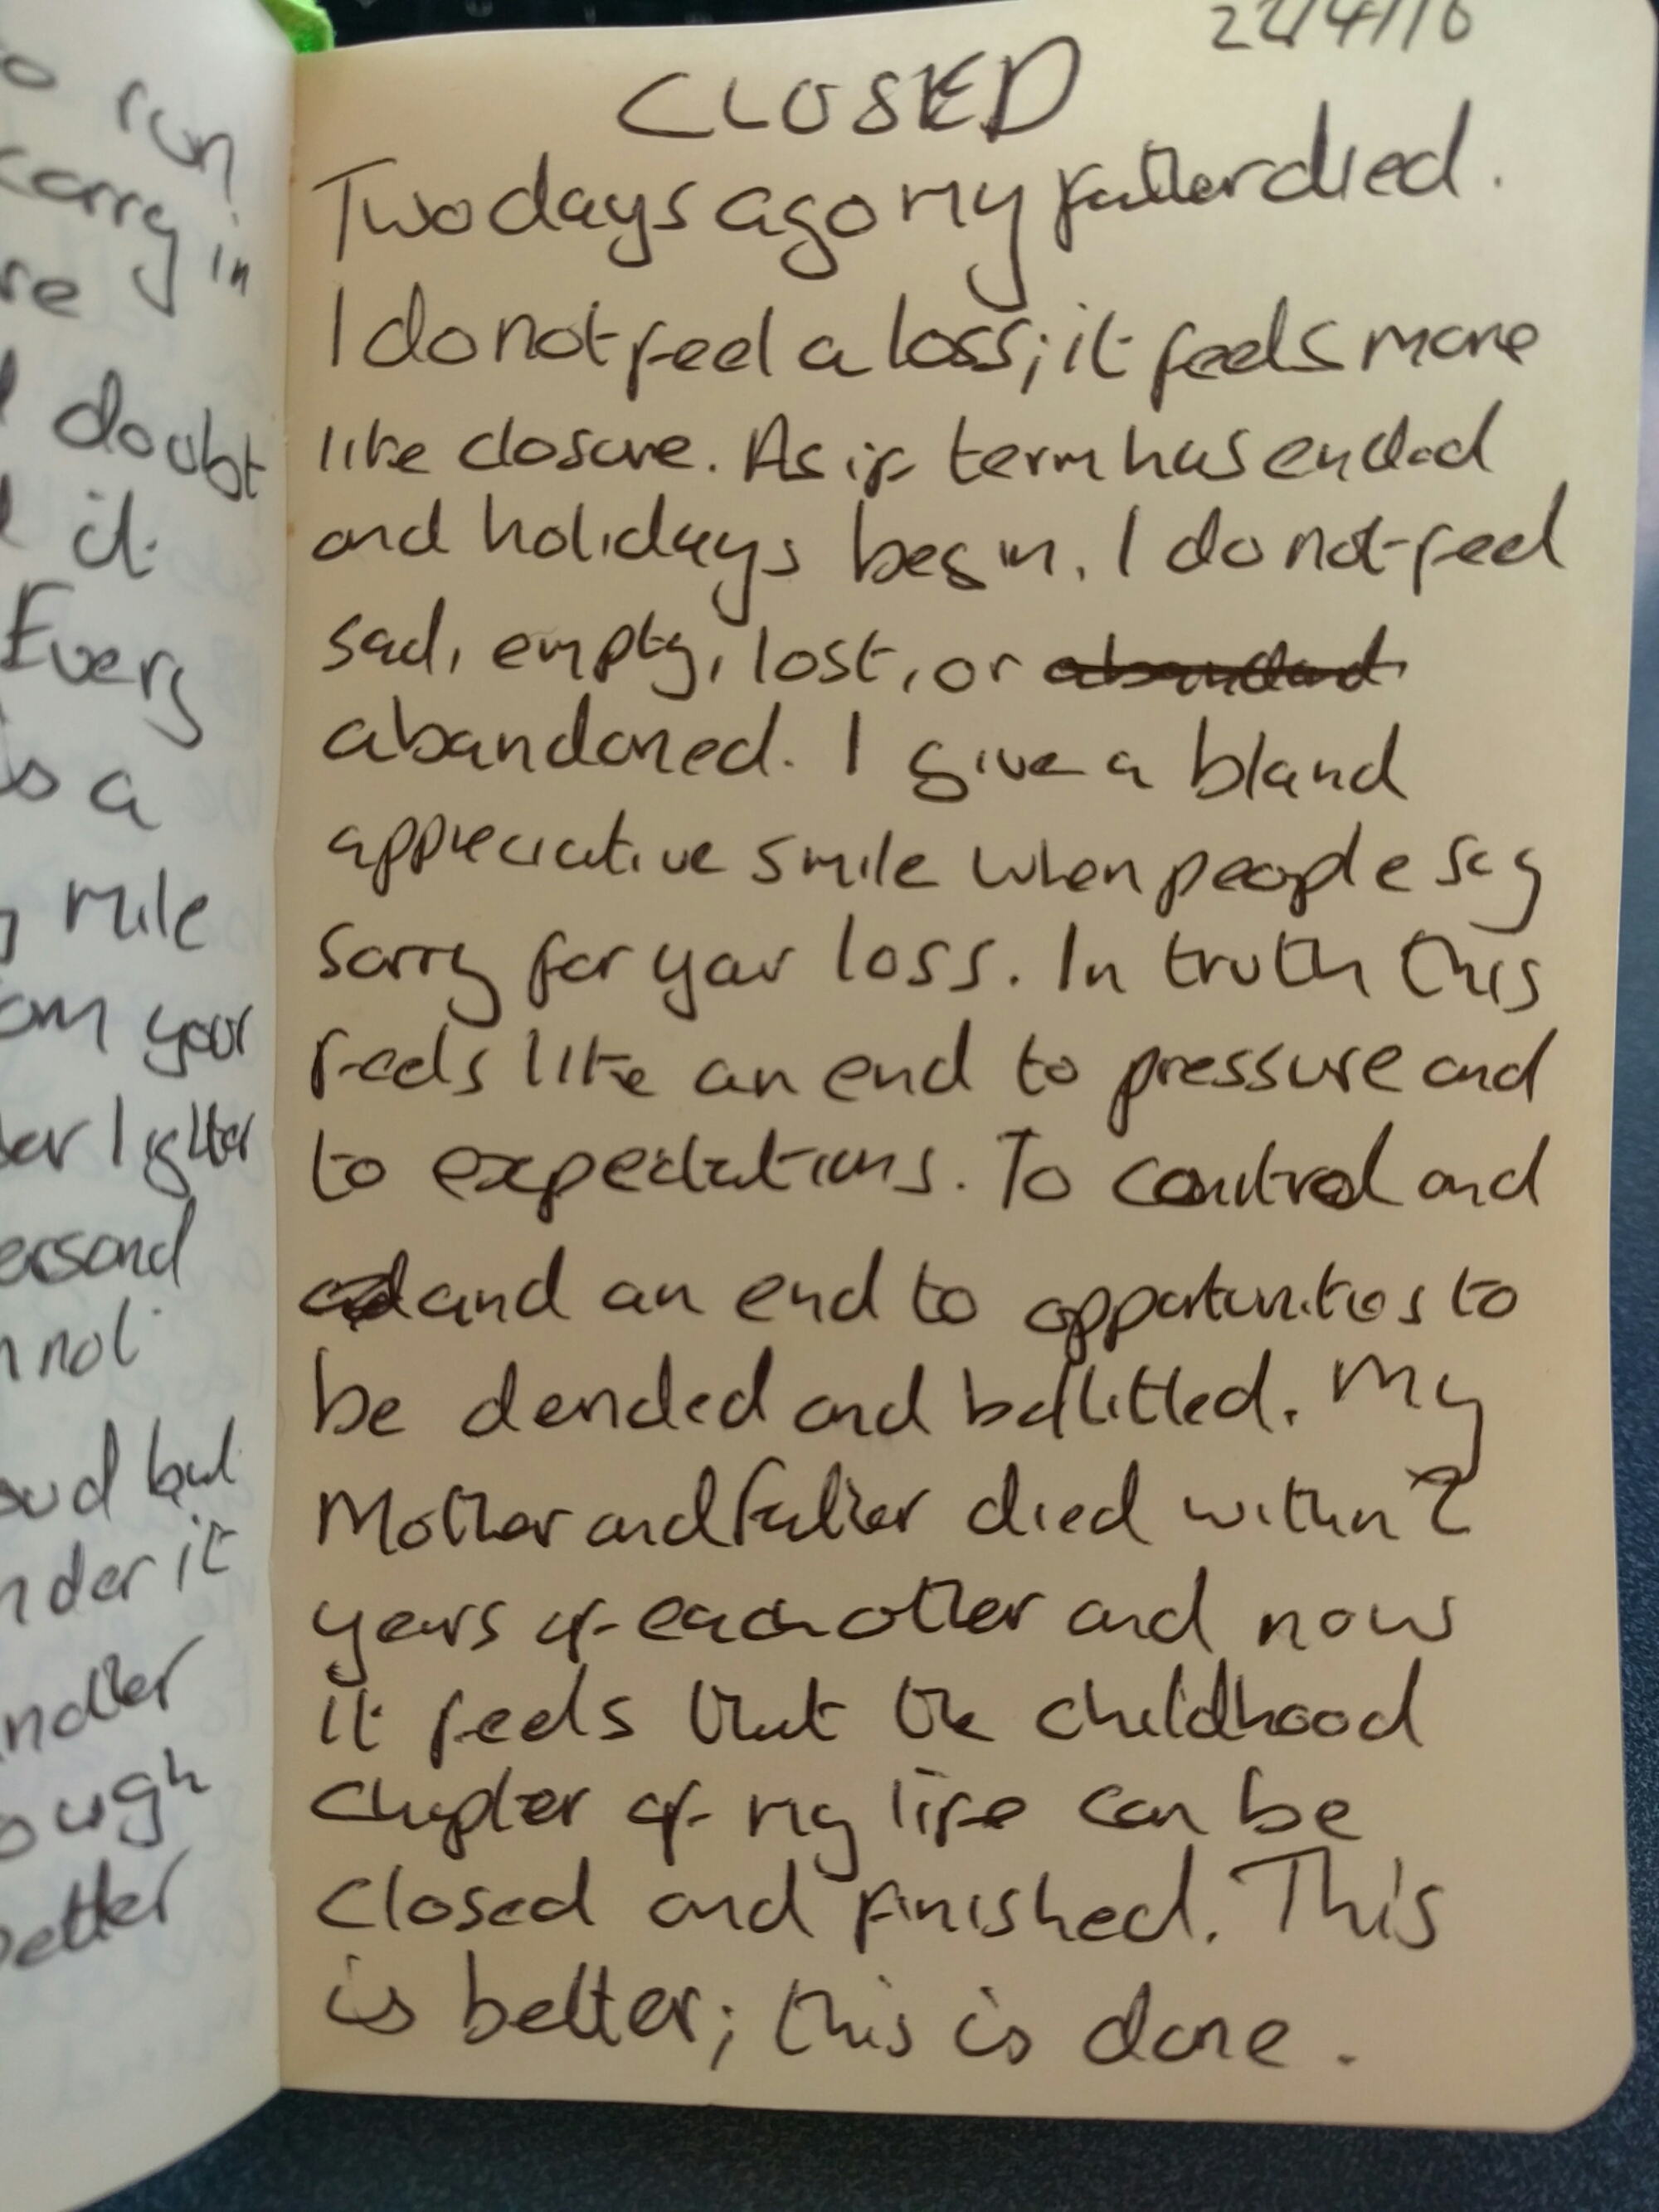 22/4/16
CLOSED
Two days ago my father died.
I do not feel a loss; it feels more
like closure. As if term has ended
and holidays begin. I do not feel
sad, empty, lost, or
abandoned. I give a bland
appreciative smile when people say
sorry for your loss. In truth this
feels like an end to pressure and
to expectations. To control and
and an end to opportunities to
be derided and belittled. My
Mother and Father died within 2
years of each other and now
it feels that the childhood
chapter of my life can be
closed and finished. This
is better; this is done.
run
carry in
doubt
it
Every
a
mile
your
lighter
not
but
it
better